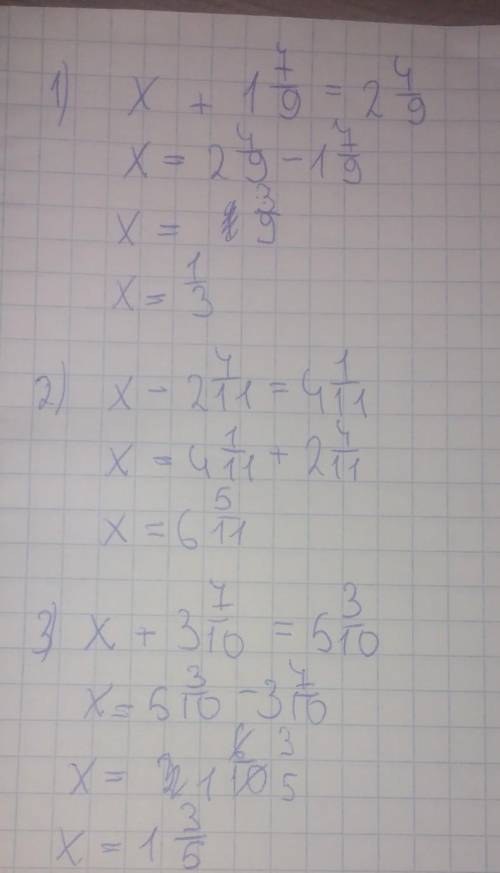 1) x + 1 7/9 = 2 4/9
x = 2 4/9 - 1 7/9
x = 3/9
x = 1/3
2) x - 2 4/11 = 4 1/11
x = 4 1/11 + 2 4/11
x = 6 5/11
3) x + 3 7/10 = 5 3/10
x = 5 3/10 - 3 7/10
x = 1 6/10 3/5
x = 1 3/5